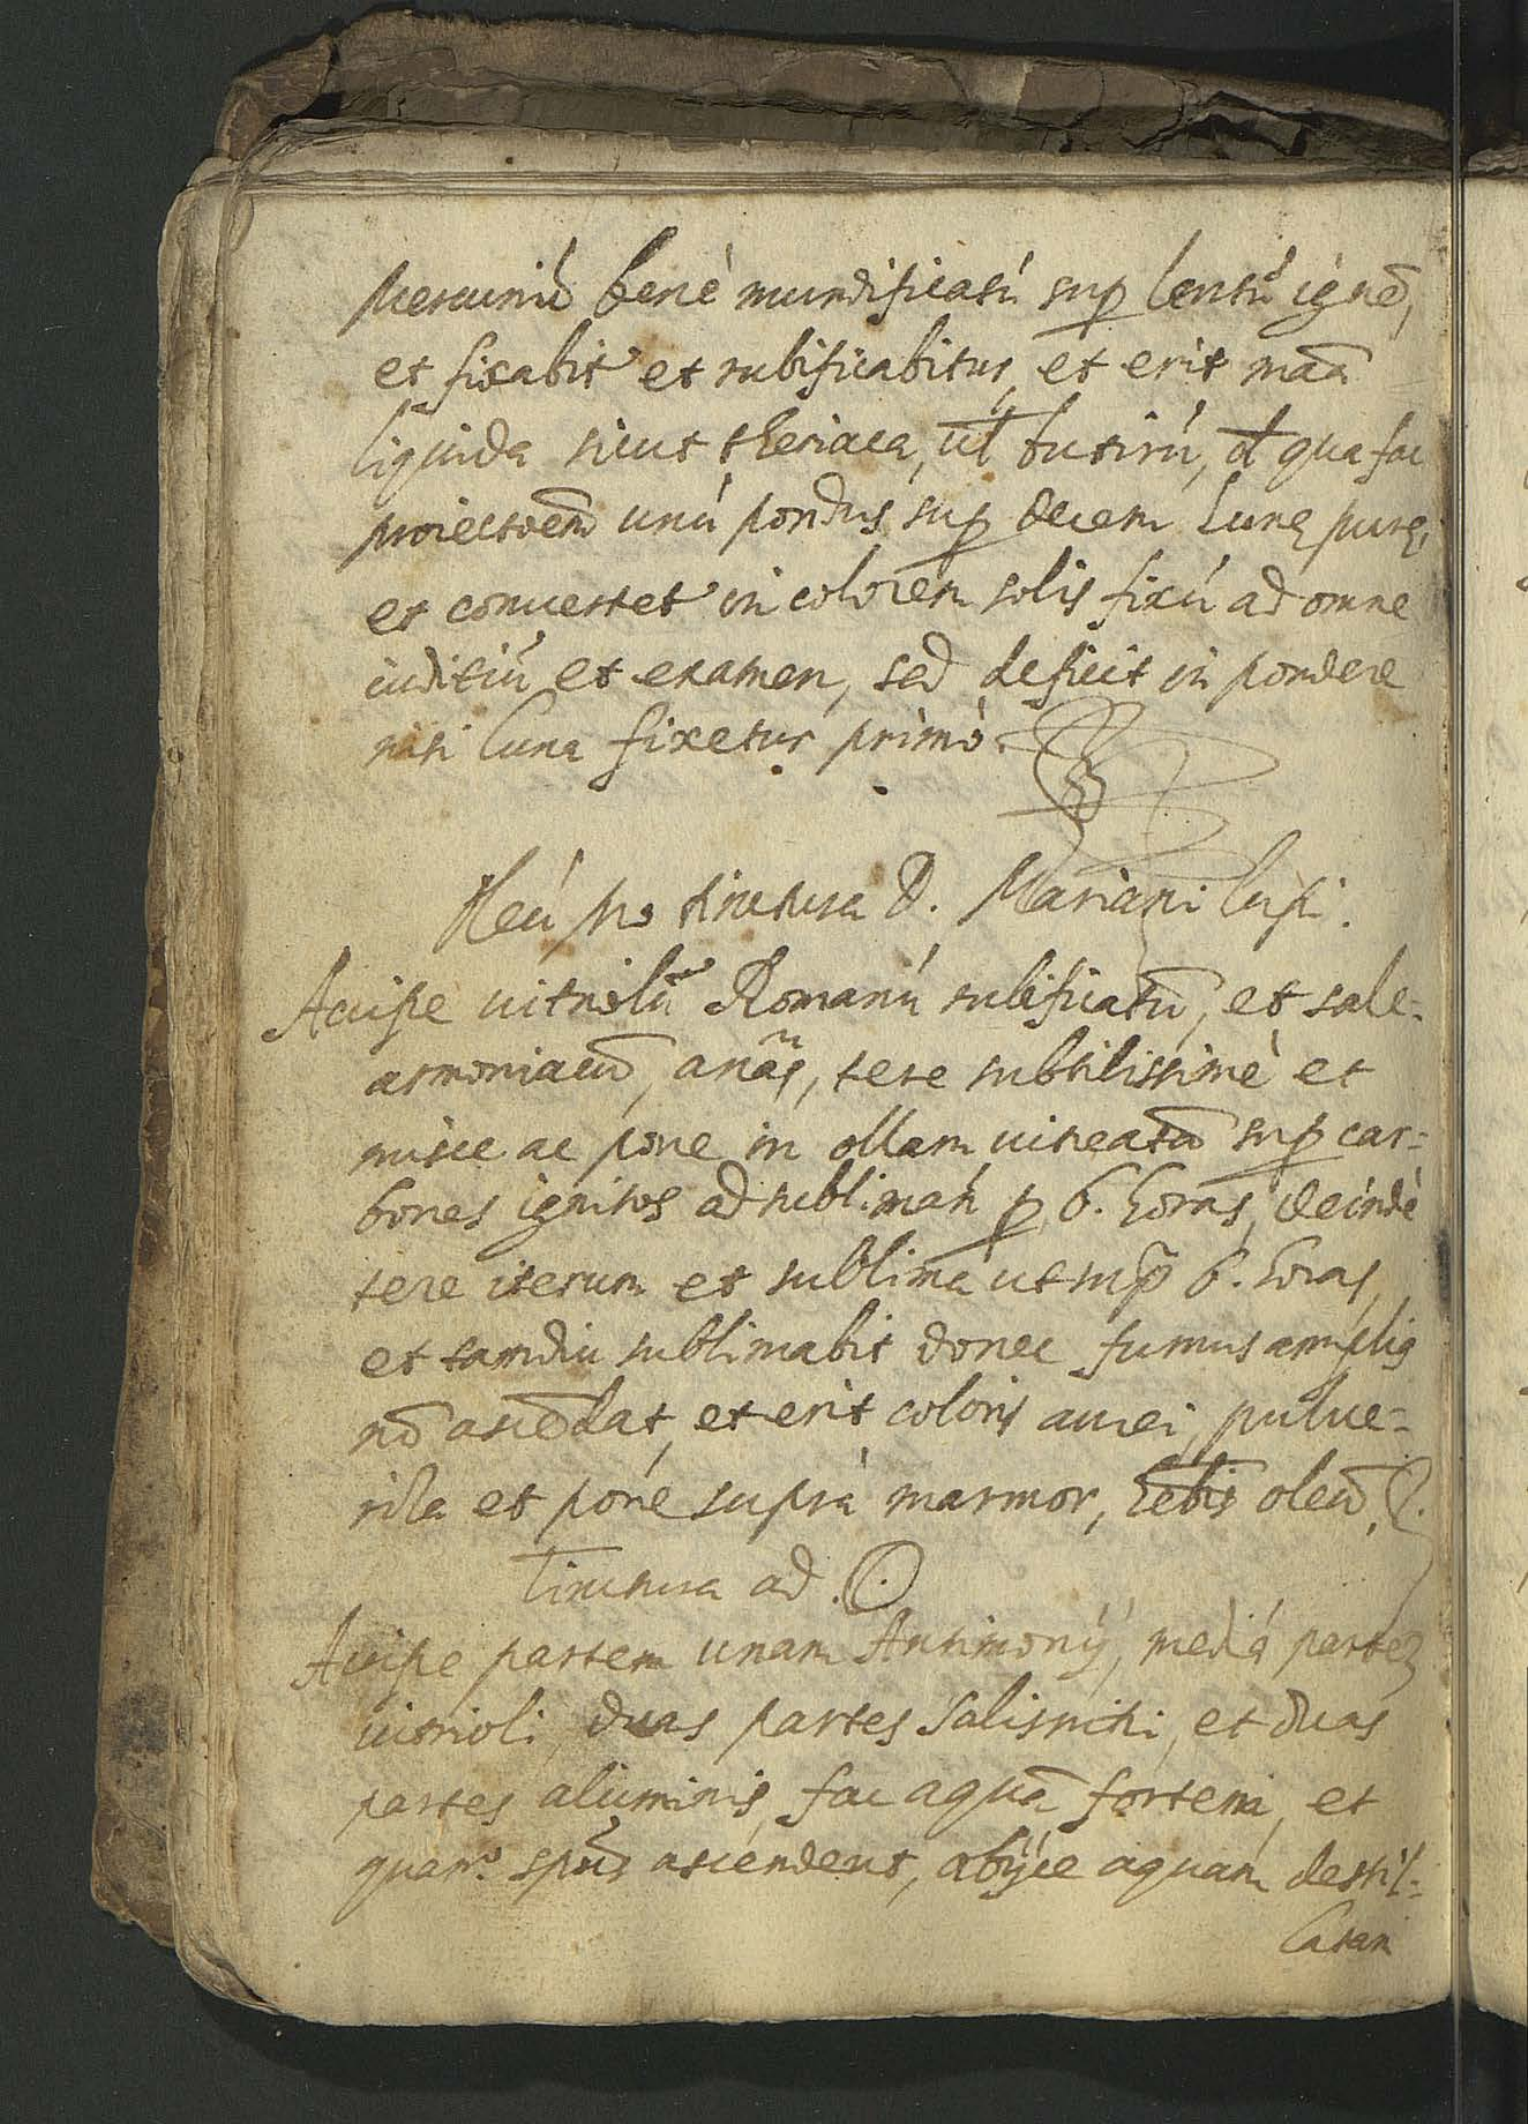 Mercuriũ benè mundificatú sup lentũ ignẽ,
et fixabit' et rubificabitur, et erit maã
liquida sicut theriaca, ul̃ butirú, d̃ qua fac
proiectoem̃ unú pondus sup decem Lunę purę,
et conuertet' in colorem solis fixú ad omne
iuditiũ et examen, sed deficit in pondere
nisi luna fixetur primò.
Aliú pro tinctura D. Mariani lupi.
Accipe uitriolũ Romanú rubificatũ, et sale-
armoniacũ, anãs, tere subtilissimè et
misce ac pone in ollam uitreatã sup car=
bones ignitos ad sublimań p 6. horas, deindè
tere iterum et sublima ut sup̃ 6. horas,
et tamdiu sublimabis donec fumus amplių
nõ ascẽdat, et erit coloris aurei, pulue=
riza et pone suprà marmor, hẽbis oleũ.
Tinctura ad ☉
Accipe partem unam Antimonÿ, mediá partez
uitrioli, duas partes Salisnitri, et duas
partes aluminis, fac aquã fortem, et
quan.º spũs ascendent, abÿce aquam destil=
latam